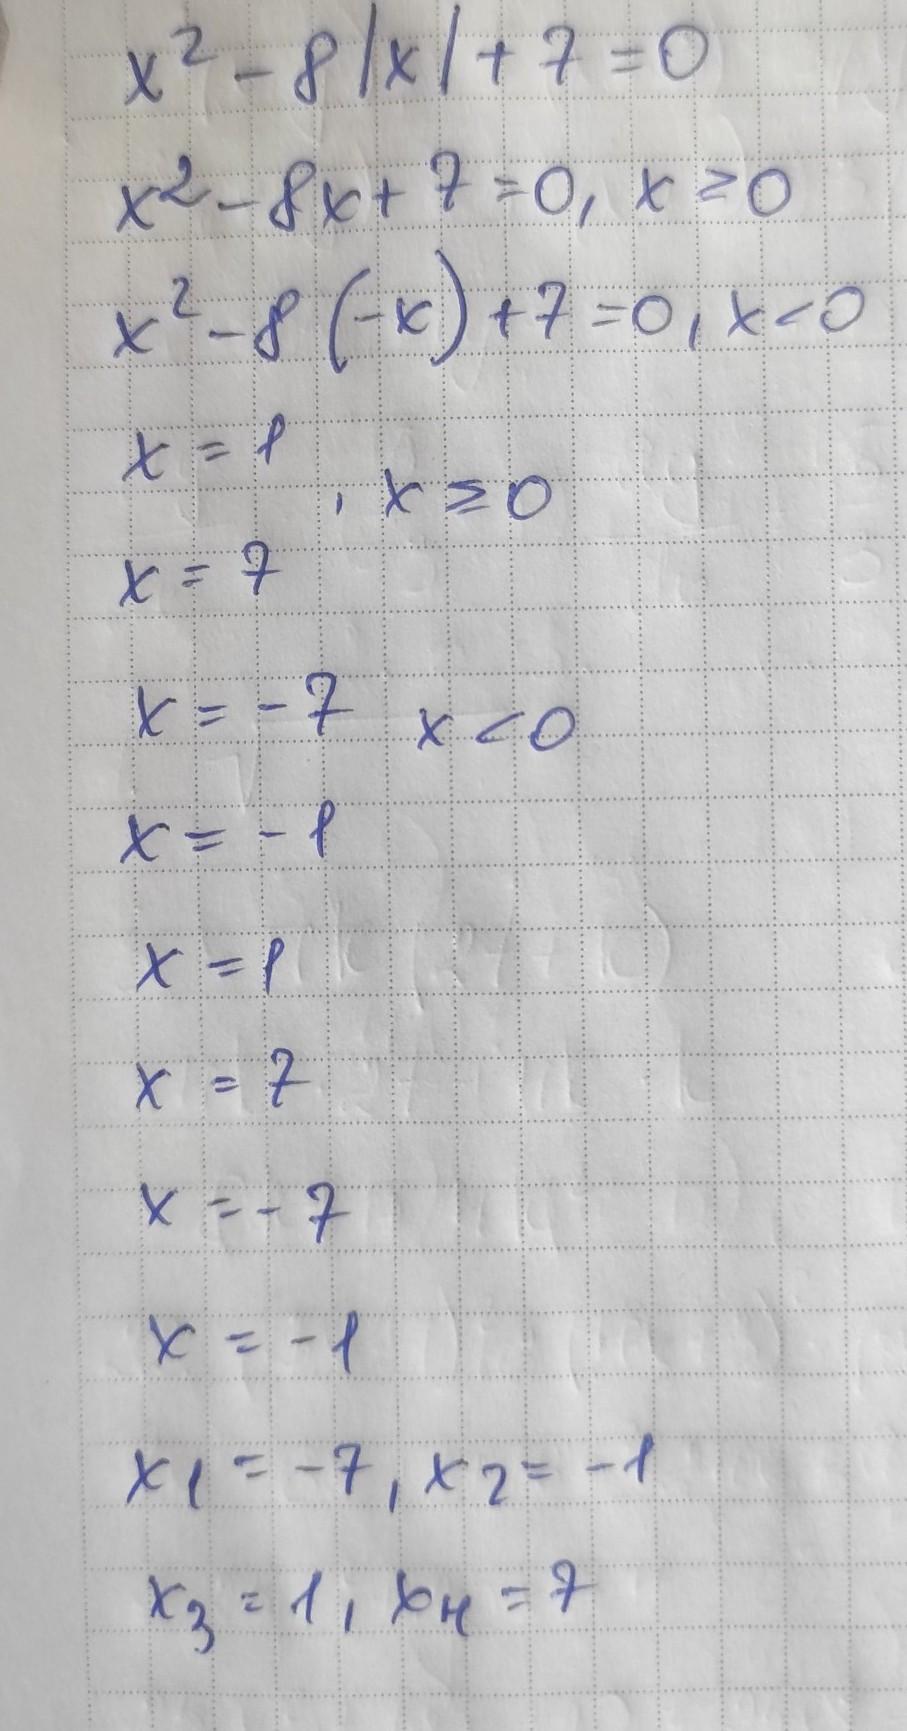 x² - 8|x| + 7 = 0
x² - 8x + 7 = 0, x ≥ 0
x² - 8(-x) + 7 = 0, x < 0
x = 1
, x ≥ 0
x = 7
x = -7 x < 0
x = -1
x = 1
x = 7
x = -7
x = -1
x₁ = -7, x₂ = -1
x₃ = 1, x₄ = 7